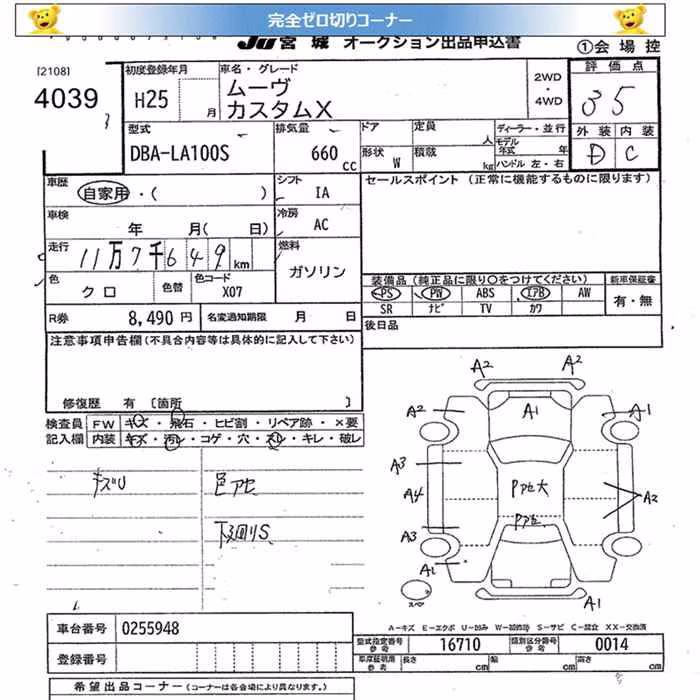 完全ゼロ切りコーナー
JU 宮城 オークション出品申込書
①会場控
[2108]
4039
初度登録年月
H25 月
車名・グレード
ムーヴ
カスタムX
2WD
・
4WD
評価点
35
外装 内装
D C
型式
DBA-LA100S
排気量
660 cc
ドア
定員 人
形状 W
積載 kg
ディーラー・並行
モデル年式 年
ハンドル 左・右
車歴
自家用・( )
シフト
IA
セールスポイント (正常に機能するものに限ります)
車検
年 月( 日)
冷房
AC
走行
11万7千649km
燃料
ガソリン
色
クロ
色替
色コード
X07
装備品 (純正品に限り○をつけてください)
新車保証書
PS PW ABS エアB AW
有・無
SR ナビ TV カワ
R券 8,490円
名変通知期限 月 日
後日品
注意事項申告欄(不具合内容等は具体的に記入して下さい)
修復歴 有 [箇所 ]
検査員
記入欄
FW キズ・飛石・ヒビ割・リペア跡・×要
内装 キズ・汚レ・コゲ・穴・スレ・キレ・破レ
キズU
色アセ
下廻りS
A2 A2
A2 A1 A1
A3
A4 Pアセ大 A2
Pアセ
A3
A1
スペア
A1
A-キズ E-エクボ U-凹み W-補修跡 S-サビ C-腐食 XX-交換済
車台番号 0255948
登録番号
型式指定番号 参考 16710
類別区分番号 参考 0014
車庫証明用 参考 長さ cm 幅 cm 高さ cm
希望出品コーナー (コーナーは各会場により異なります。)